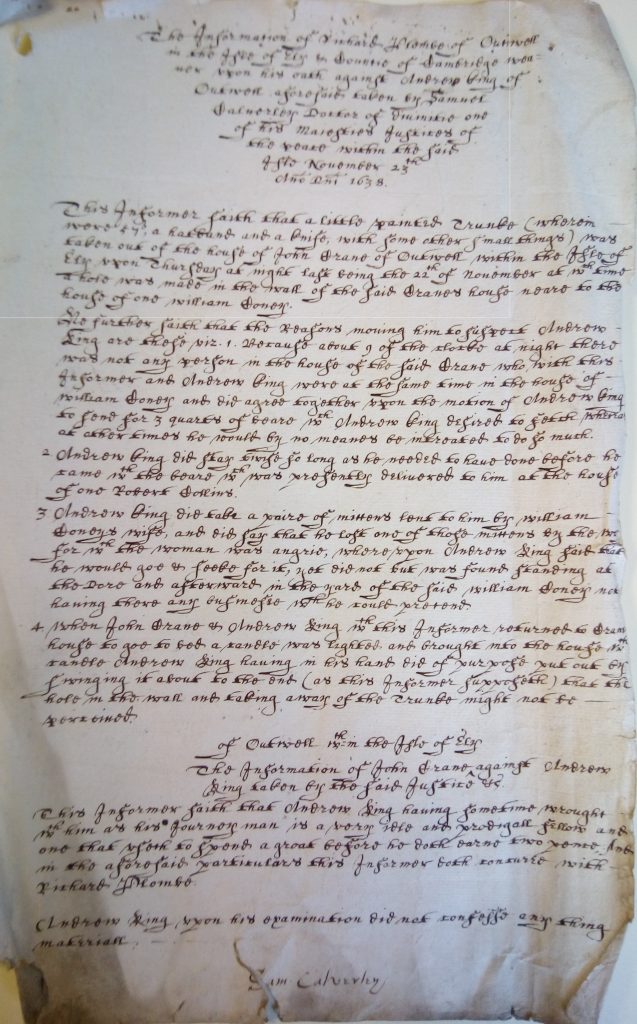 The Information of Richard Plombe of Outwell
in the Isle of Ely & Countie of Cambridge wea=
ver upon his oath against Andrew King of
Outwell aforesaid taken by Samuel
Calverley Doctor of Divinitie one
of his Maiesties Justices of
the peace within the said
Isle November 23th
Ano Dni 1638.
This Informer saith that a little painted Trunke (wherein
were a hatband and a knife, with some other small things) was
taken out of the house of John Crane of Outwell within the Isle of
Ely upon Thursday at night last being the 22th of November at wch time
a hole was made in the wall of the said Cranes house neare to the
house of one william Coney.
He further saith that the Reasons moving him to suspect Andrew
King are these viz. 1. Because about 9 of the clocke at night there
was not any person in the house of the said Crane who, with this
Informer and Andrew King were at the same time in the house of
william Coney and did agree together upon the motion of Andrew King
to send for 3 quarts of beare wch Andrew King desired to fetch
at other times he would by no meanes be intreated to do so much.
2 Andrew King did stay twise so long as he needed to have done before he
came wth the beare wch was presently delivered to him at the house
of one Robert Collins.
3 Andrew King did take a paire of mittens lent to him by william
Coneys wife, and did say that he lost one of those mittens by the
for wch the woman was angrie, whereupon Andrew King said that
he would goe & seeke for it, yet did not but was found standing at
the Dore and afterward in the yard of the said william Coney not
having there any businesse wch he could pretend.
4 When John Crane & Andrew King wth this Informer returned to Cranes
house to goe to bed a candle was lighted and brought into the house wch
candle Andrew King having in his hand did of purpose put out by
swinging it about to the end (as this Informer supposeth) that the
hole in the wall and taking away of the Trunke might not be
perceived.
of Outwell wth=in the Isle of Ely
The Information of John Crane against Andrew
King taken by the said Justice &c.
This Informer saith that Andrew King having sometime wrought
wth him as his Journey man is a very idle and prodigall fellow and
one that useth to spend a groat before he doth earne two pence. And
in the aforesaid particulars this Informer doth concurre with
Richard Plombe.
Andrew King upon his examination did not confesse any thing
materiall.
Sam: Calverley